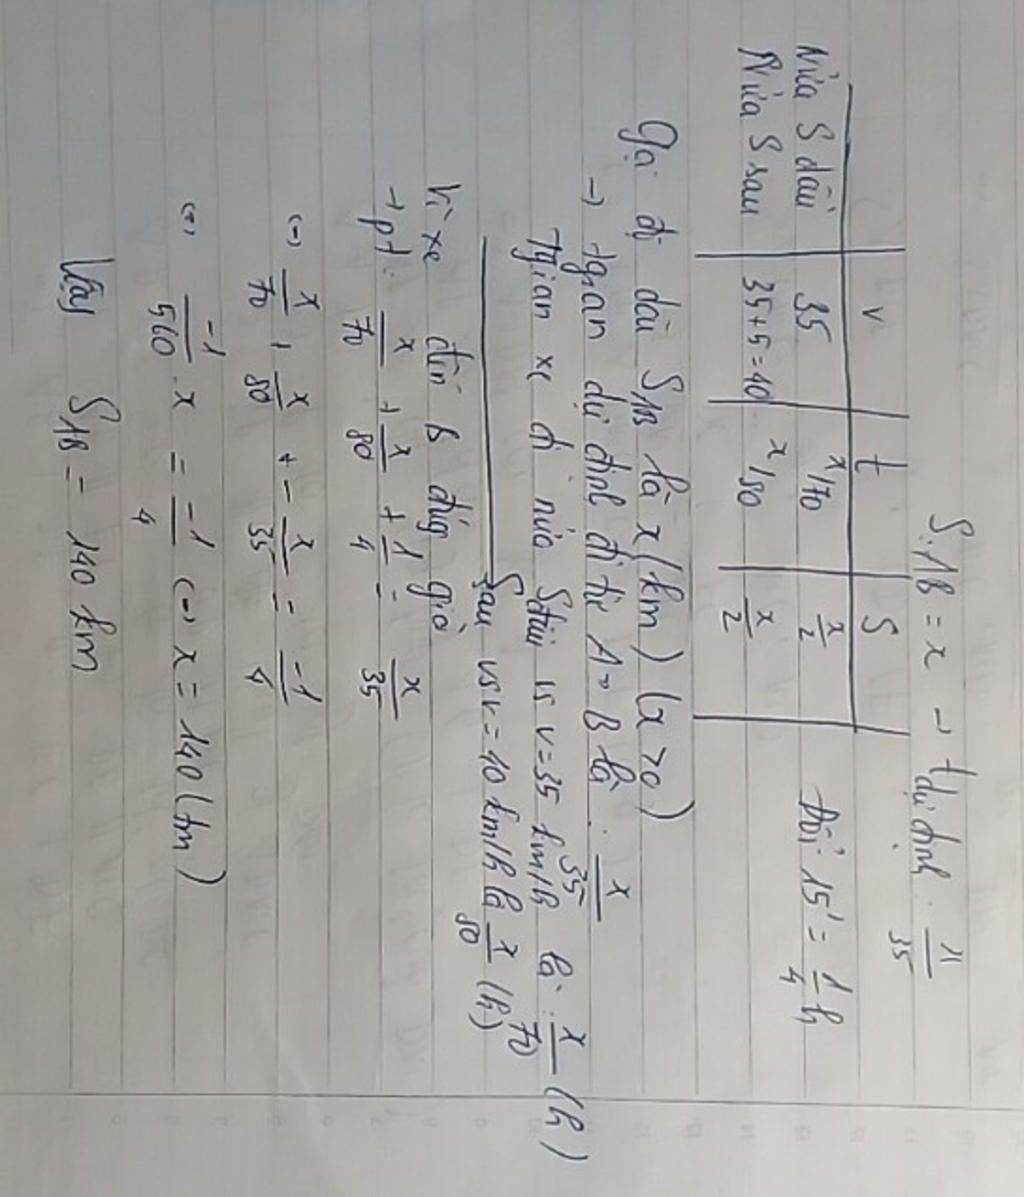 S AB = x → t dự định : x/35
v t S
Nửa S đầu 35 x/70 x/2 Đổi 15' = 1/4 h
Nửa S sau 35+5=40 x/80 x/2
Gọi độ dài S AB là x (km) (x > 0)
→ tgian dự định đi từ A → B là : x/35
Tgian xe đi nửa S đầu vs v = 35 km/h là : x/70 (h)
S sau vs v = 40 km/h là x/80 (h)
Vì xe đến B đúng giờ
→ pt : x/70 + x/80 + 1/4 = x/35
(=) x/70 + x/80 + - x/35 = -1/4
(=) -1/560 . x = -1/4 (=) x = 140 (tm)
Vậy S AB = 140 km